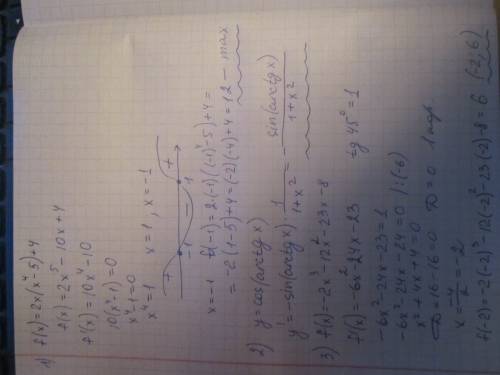 1) f(x) = 2x(x⁴-5)+4
f(x) = 2x⁵-10x+4
f'(x) = 10x⁴-10
10(x⁴-1)=0
x⁴-1=0
x⁴=1 x=1, x=-1
+ - +
-1 1
x=-1 f(-1) = 2·(-1)((-1)⁴-5)+4=
= -2(1-5)+4=(-2)(-4)+4=12 - max
2) y=cos(arctg x)
y' = -sin(arctg x) · 1/(1+x²) = - sin(arctg x)/(1+x²)
3) f(x) = -2x³-12x²-23x-8
f'(x) = -6x²-24x-23 tg 45°=1
-6x²-24x-23=1
-6x²-24x-24=0 |:(-6)
x²+4x+4=0
D=16-16=0 D=0 1
x=-4/2=-2
f(-2)=-2(-2)³-12(-2)²-23(-2)-8=6 (-2;6)